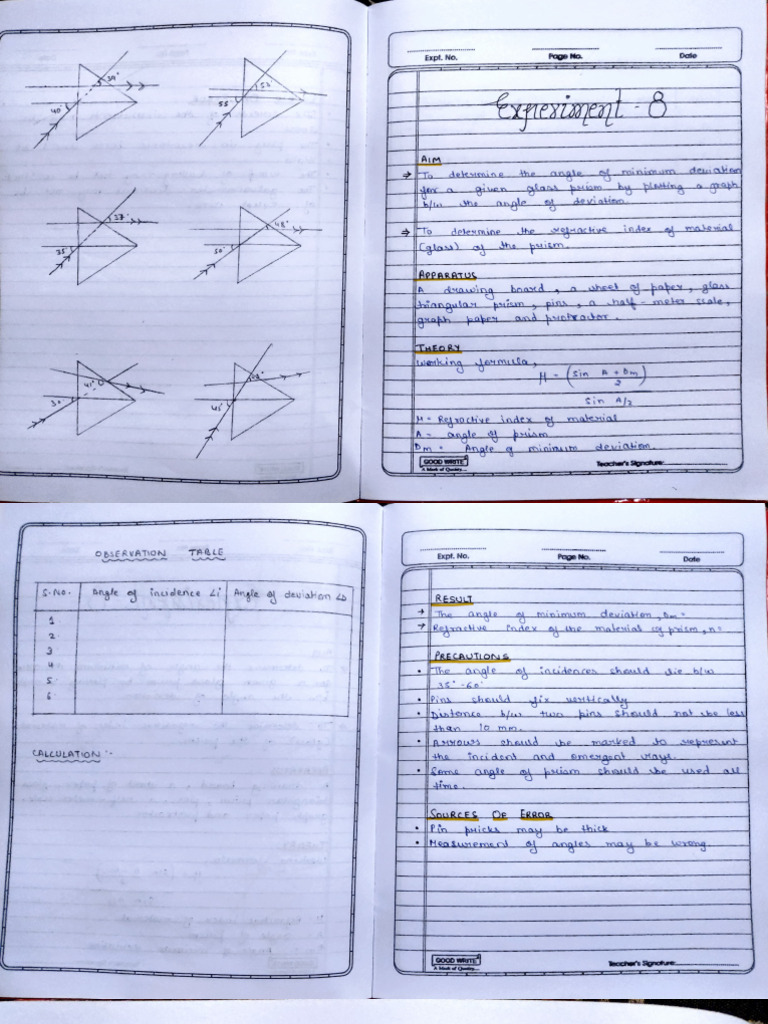 39°
40°
50°
55°
38°
35°
48°
50°
41°
30°
45°
Expt. No.
Page No.
Date
Experiment - 8
AIM
→ To determine the angle of minimum deviation
for a given glass prism by plotting a graph
b/w the angle of deviation.
→ To determine the refractive index of material
(glass) of the prism.
APPARATUS
A drawing board, a sheet of paper, glass
triangular prism, pins, a half-meter scale,
graph paper and protractor.
THEORY
Working formula,
μ = (sin A + Dm / 2)
sin A/2
μ = Refractive index of material
A = angle of prism
Dm = Angle of minimum deviation.
GOOD WRITE
A Mark of Quality...
Teacher's Signature:
OBSERVATION TABLE
S.No. Angle of incidence ∠i Angle of deviation ∠D
1
2
3
4
5
6
CALCULATION :-
Expt. No.
Page No.
Date
RESULT
→ The angle of minimum deviation, Dm =
→ Refractive index of the material of prism, n=
PRECAUTIONS
• The angle of incidences should lie b/w
35° - 60°
• Pins should fix vertically
• Distance b/w two pins should not be less
than 10 mm.
• Arrows should be marked to represent
the incident and emergent rays.
• Same angle of prism should be used all
time.
SOURCES OF ERROR
• Pin pricks may be thick
• Measurement of angles may be wrong.
GOOD WRITE
A Mark of Quality...
Teacher's Signature: